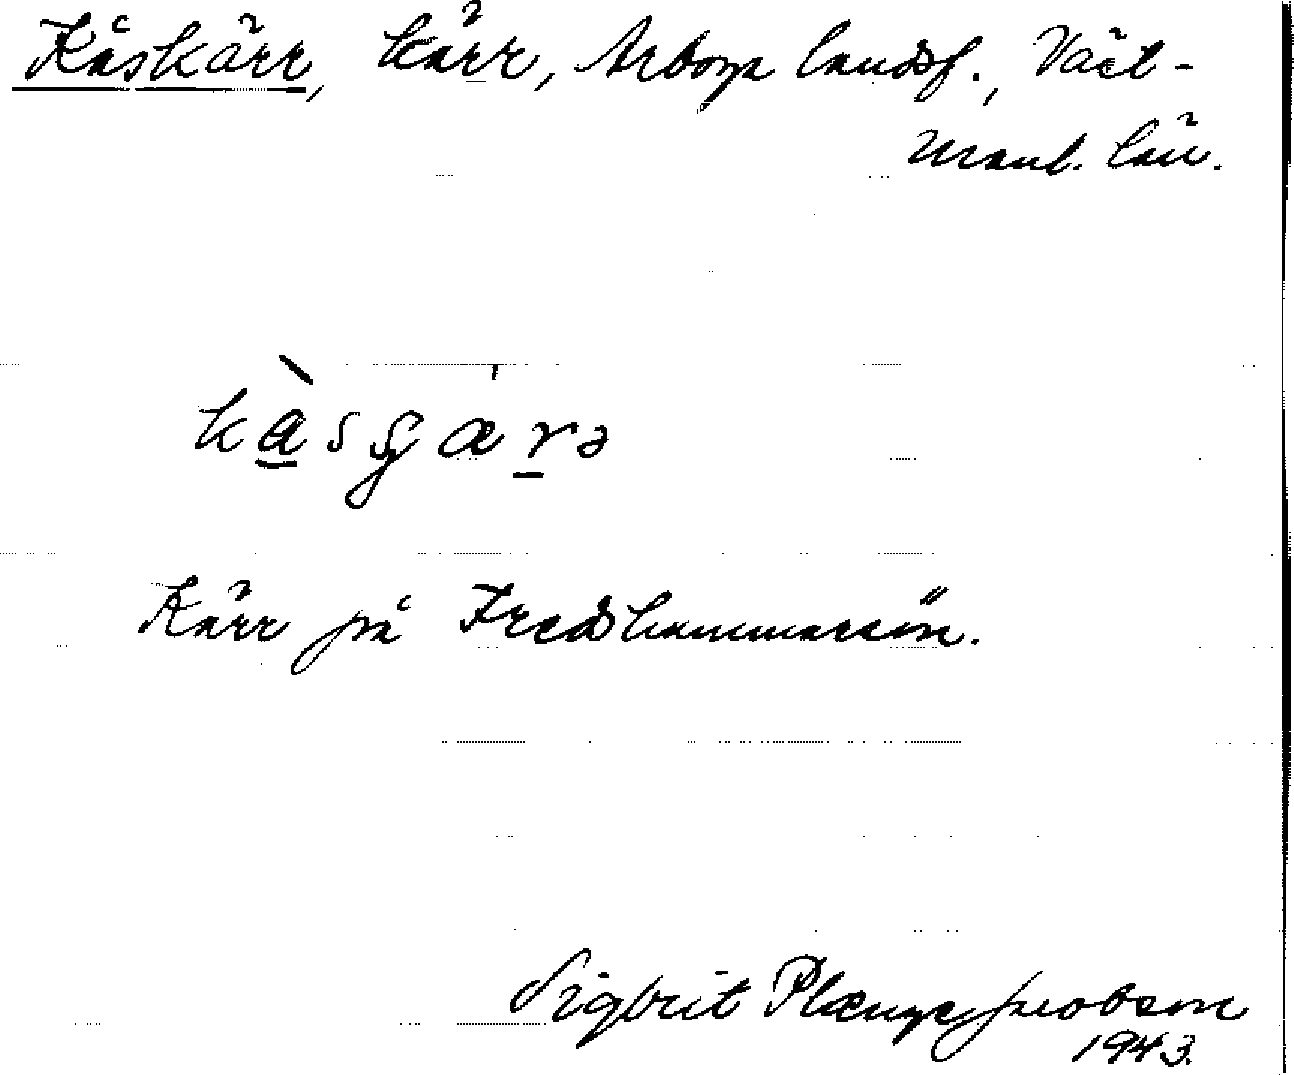 Kåskärr, kärr, Arboga landsf., Väst-
manl. län.
kåsgärə
Kärr på Fredshammarsön.
Sigbrit Plænge Jacobson
1943.